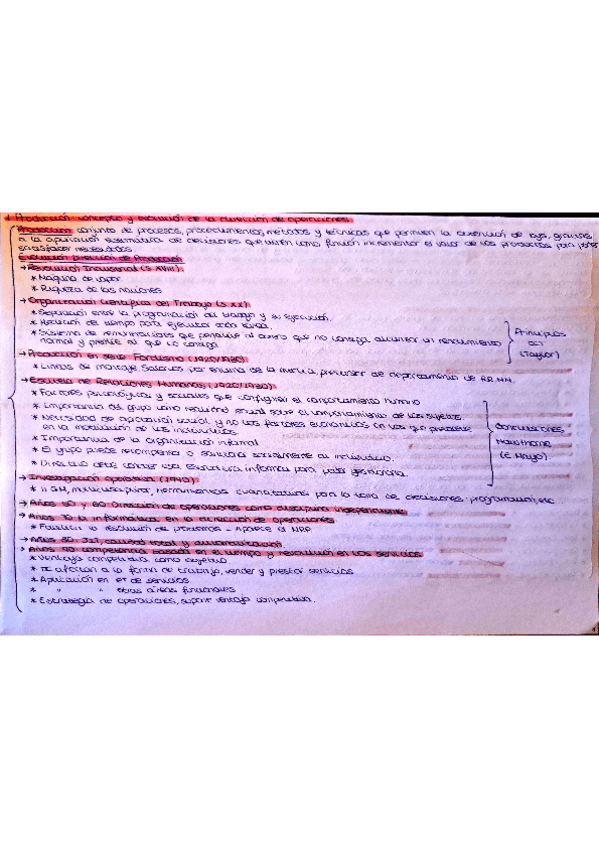 1. Producción: concepto y evolución de la dirección de operaciones
Producción: conjunto de procesos, procedimientos, métodos y técnicas que permiten la obtención de, gracias
a la aplicación sistemática de decisiones que tienen como función incrementar el valor de los productos para poder
satisfacer necesidades.
Evolución Dirección de Producción
→ Revolución Industrial (S. XVIII)
* Máquina de vapor
* Riqueza de las naciones
→ Organización Científica del Trabajo (S. XX)
* Separación entre la programación del trabajo y su ejecución.
* de tiempo para ejecutar cada tarea.
* Sistema de remuneraciones que penalice al obrero que no consiga alcanzar un rendimiento
normal y premie al que lo consiga
Principios
OCT
(Taylor)
→ Producción en serie Fordismo (1920/1930)
* Líneas de montaje Salarios por encima de la media, precursor de departamento de RR.HH.
→ Escuela de Relaciones Humanas (1920/1930)
* Factores psicológicos y sociales que configuran el comportamiento humano
* Importancia del grupo como sobre el comportamiento de los sujetos.
* Necesidad de aprobación social y no los factores económicos son los que
en la motivación de los individuos.
* Importancia de la organización informal
* El grupo puede recompensar o sancionar socialmente al individuo.
* Directivo debe conocer esa estructura informal para poder gestionarla.
Conclusiones
Hawthorne
(E. Mayo)
→ Investigación operativa (1940)
* II GM, multidisciplinar, herramientas cuantitativas para la toma de decisiones, programación, etc
→ Años 50 y 60 Dirección de operaciones como disciplina independiente
→ Años 70 la informática en la dirección de operaciones
* Facilita la resolución de problemas - Aparece el MRP
→ Años 80 JIT, calidad total y automatización
→ Años 90 competencia basada en el tiempo y revolución en los servicios
* Ventaja competitiva como objetivo
* TIC afectan a la forma de trabajo, vender y prestar servicios
* Aplicación en de servicios
* " " otras áreas funcionales
* Estrategia de operaciones, soporte ventaja competitiva.